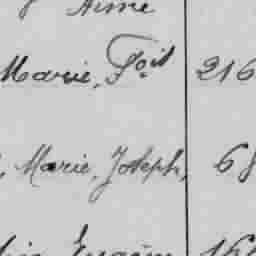 Aimé
Marie, Fçois 216
Marie, Joseph, 68
Eugène 162